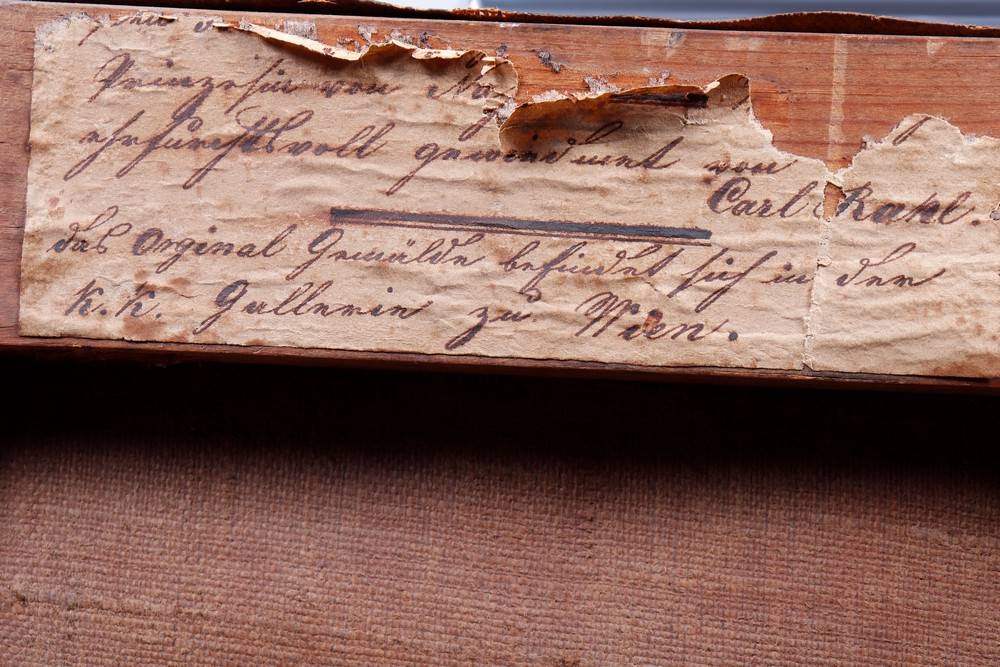 Prinzesin von
ehrfurchtsvoll gewindmet von
Carl Rahl.
das Orginal Gemälde befindet sich in der
K. K. Gallerie zu Wien.